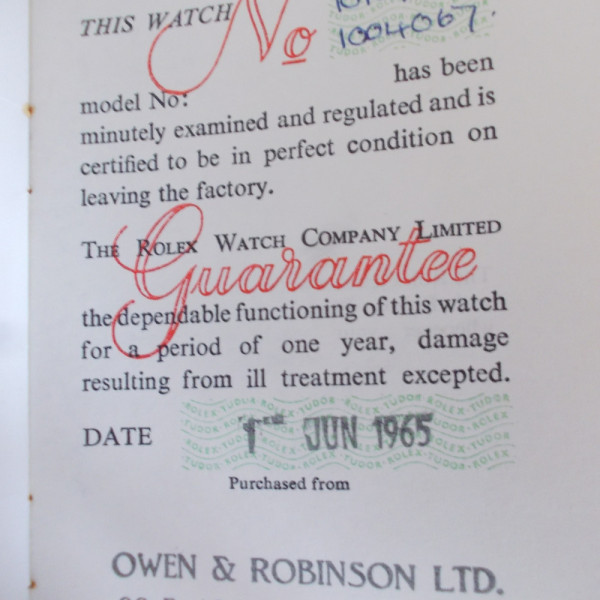 THIS WATCH No
1004067.
has been
model No:
minutely examined and regulated and is
certified to be in perfect condition on
leaving the factory.
THE ROLEX WATCH COMPANY LIMITED
Guarantee
the dependable functioning of this watch
for a period of one year, damage
resulting from ill treatment excepted.
ROLEX·TUDOR·ROLEX·TUDOR
DATE 1ST JUN 1965
Purchased from
OWEN & ROBINSON LTD.